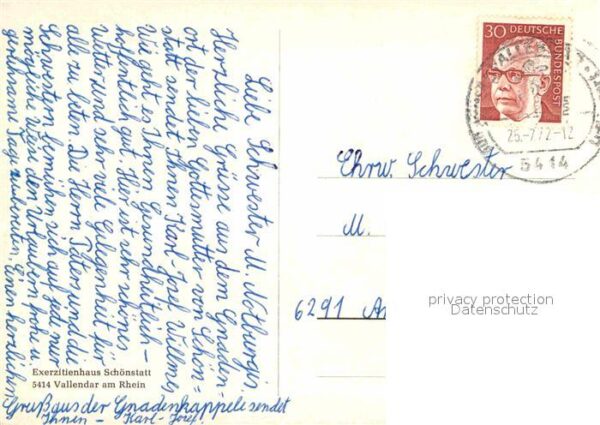 Liebe Schwester M. Notburgis.
Herzliche Grüsse aus dem Gnaden=
ort der lieben Gottesmutter von Schön=
statt sendet Ihnen Karl-Josef Willms,
Wie geht es Ihnen Gesundheitlich-
hoffentlich gut. Hier ist sehr schönes
Wetter und sehr viel Gelegenheit für
alle zu beten. Die Herrn Paters und die
Schwestern bemühen sich auf jede nur
mögliche Weise den Urlaubern frohe u.
Tage zubereiten. Einen herzlichen
Gruß aus der Gnadenkappele sendet
Ihnen - Karl-Josef.
Exerzitienhaus Schönstatt
5414 Vallendar am Rhein
30
DEUTSCHE
BUNDESPOST
25.-7.72-12
5414
Ehrw. Schwester
M.
6291
privacy protection
Datenschutz